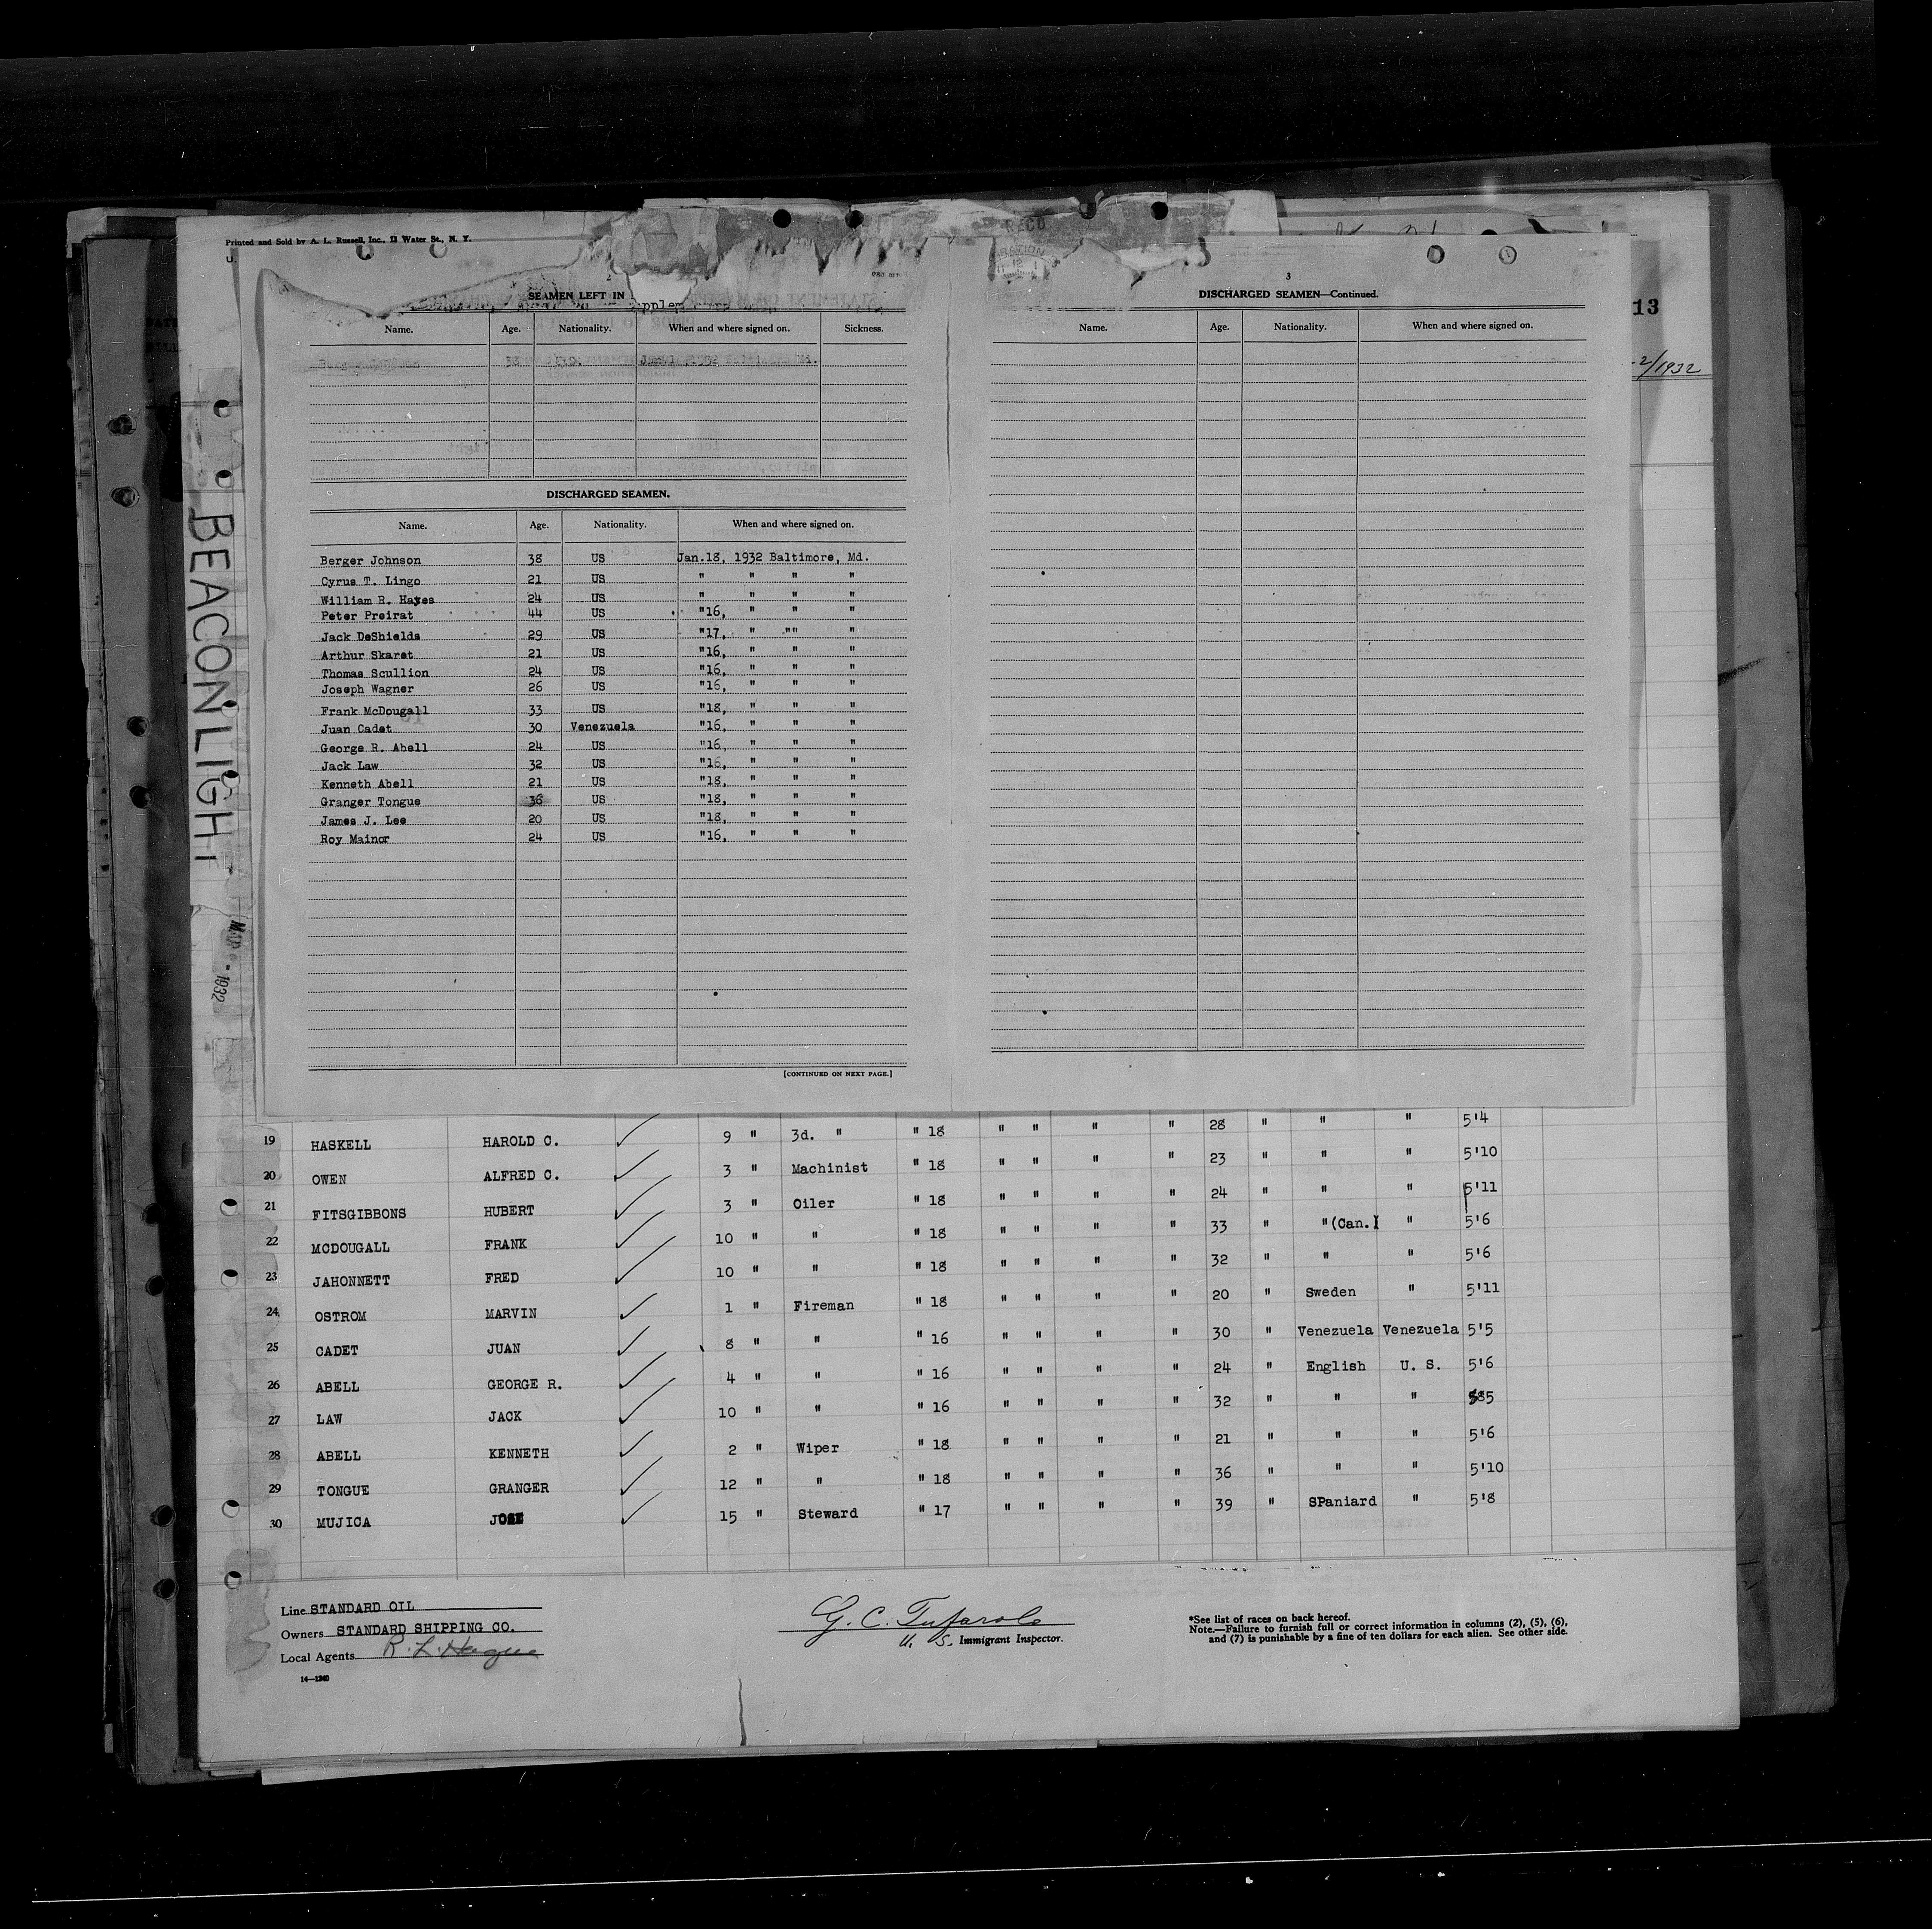 Printed and Sold by A. L. Russell, Inc., 13 Water St., N. Y.
U.
13
2/1932
BEACONLIGHT
MAR 1932
RECD
2
SEAMEN LEFT IN
Name. Age. Nationality. When and where signed on. Sickness.
38 Md.
DISCHARGED SEAMEN.
Name. Age. Nationality. When and where signed on.
Berger Johnson 38 US Jan.18, 1932 Baltimore, Md.
Cyrus T. Lingo 21 US " " " "
William R. Hayes 24 US " " " "
Peter Preirat 44 US "16, " " "
Jack DeShields 29 US "17, " "" "
Arthur Skaret 21 US "16, " " "
Thomas Scullion 24 US "16, " " "
Joseph Wagner 26 US "16, " " "
Frank McDougall 33 US "18, " " "
Juan Cadet 30 Venezuela "16, " " "
George R. Abell 24 US "16, " " "
Jack Law 32 US "16, " " "
Kenneth Abell 21 US "18, " " "
Granger Tongue 36 US "18, " " "
James J. Lee 20 US "18, " " "
Roy Mainor 24 US "16, " " "
[CONTINUED ON NEXT PAGE.]
3
DISCHARGED SEAMEN—Continued.
Name. Age. Nationality. When and where signed on.
19 HASKELL HAROLD C. 9 " 3d. " " 18 " " " " 28 " " " 5'4
20 OWEN ALFRED C. 3 " Machinist " 18 " " " " 23 " " " 5'10
21 FITSGIBBONS HUBERT 3 " Oiler " 18 " " " " 24 " " " 5'11
22 MCDOUGALL FRANK 10 " " " 18 " " " " 33 " "(Can.) " 5'6
23 JAHONNETT FRED 10 " " " 18 " " " " 32 " " " 5'6
24 OSTROM MARVIN 1 " Fireman " 18 " " " " 20 " Sweden " 5'11
25 CADET JUAN 8 " " " 16 " " " " 30 " Venezuela Venezuela 5'5
26 ABELL GEORGE R. 4 " " " 16 " " " " 24 " English U. S. 5'6
27 LAW JACK 10 " " " 16 " " " " 32 " " "
28 ABELL KENNETH 2 " Wiper " 18 " " " " 21 " " " 5'6
29 TONGUE GRANGER 12 " " " 18 " " " " 36 " " " 5'10
30 MUJICA JOSE 15 " Steward " 17 " " " " 39 " SPaniard " 5'8
Line STANDARD OIL
Owners STANDARD SHIPPING CO.
Local Agents R. L. Hague
14—1240
G. C. Tufarolo
U. S. Immigrant Inspector.
*See list of races on back hereof.
Note.—Failure to furnish full or correct information in columns (2), (5), (6),
and (7) is punishable by a fine of ten dollars for each alien. See other side.